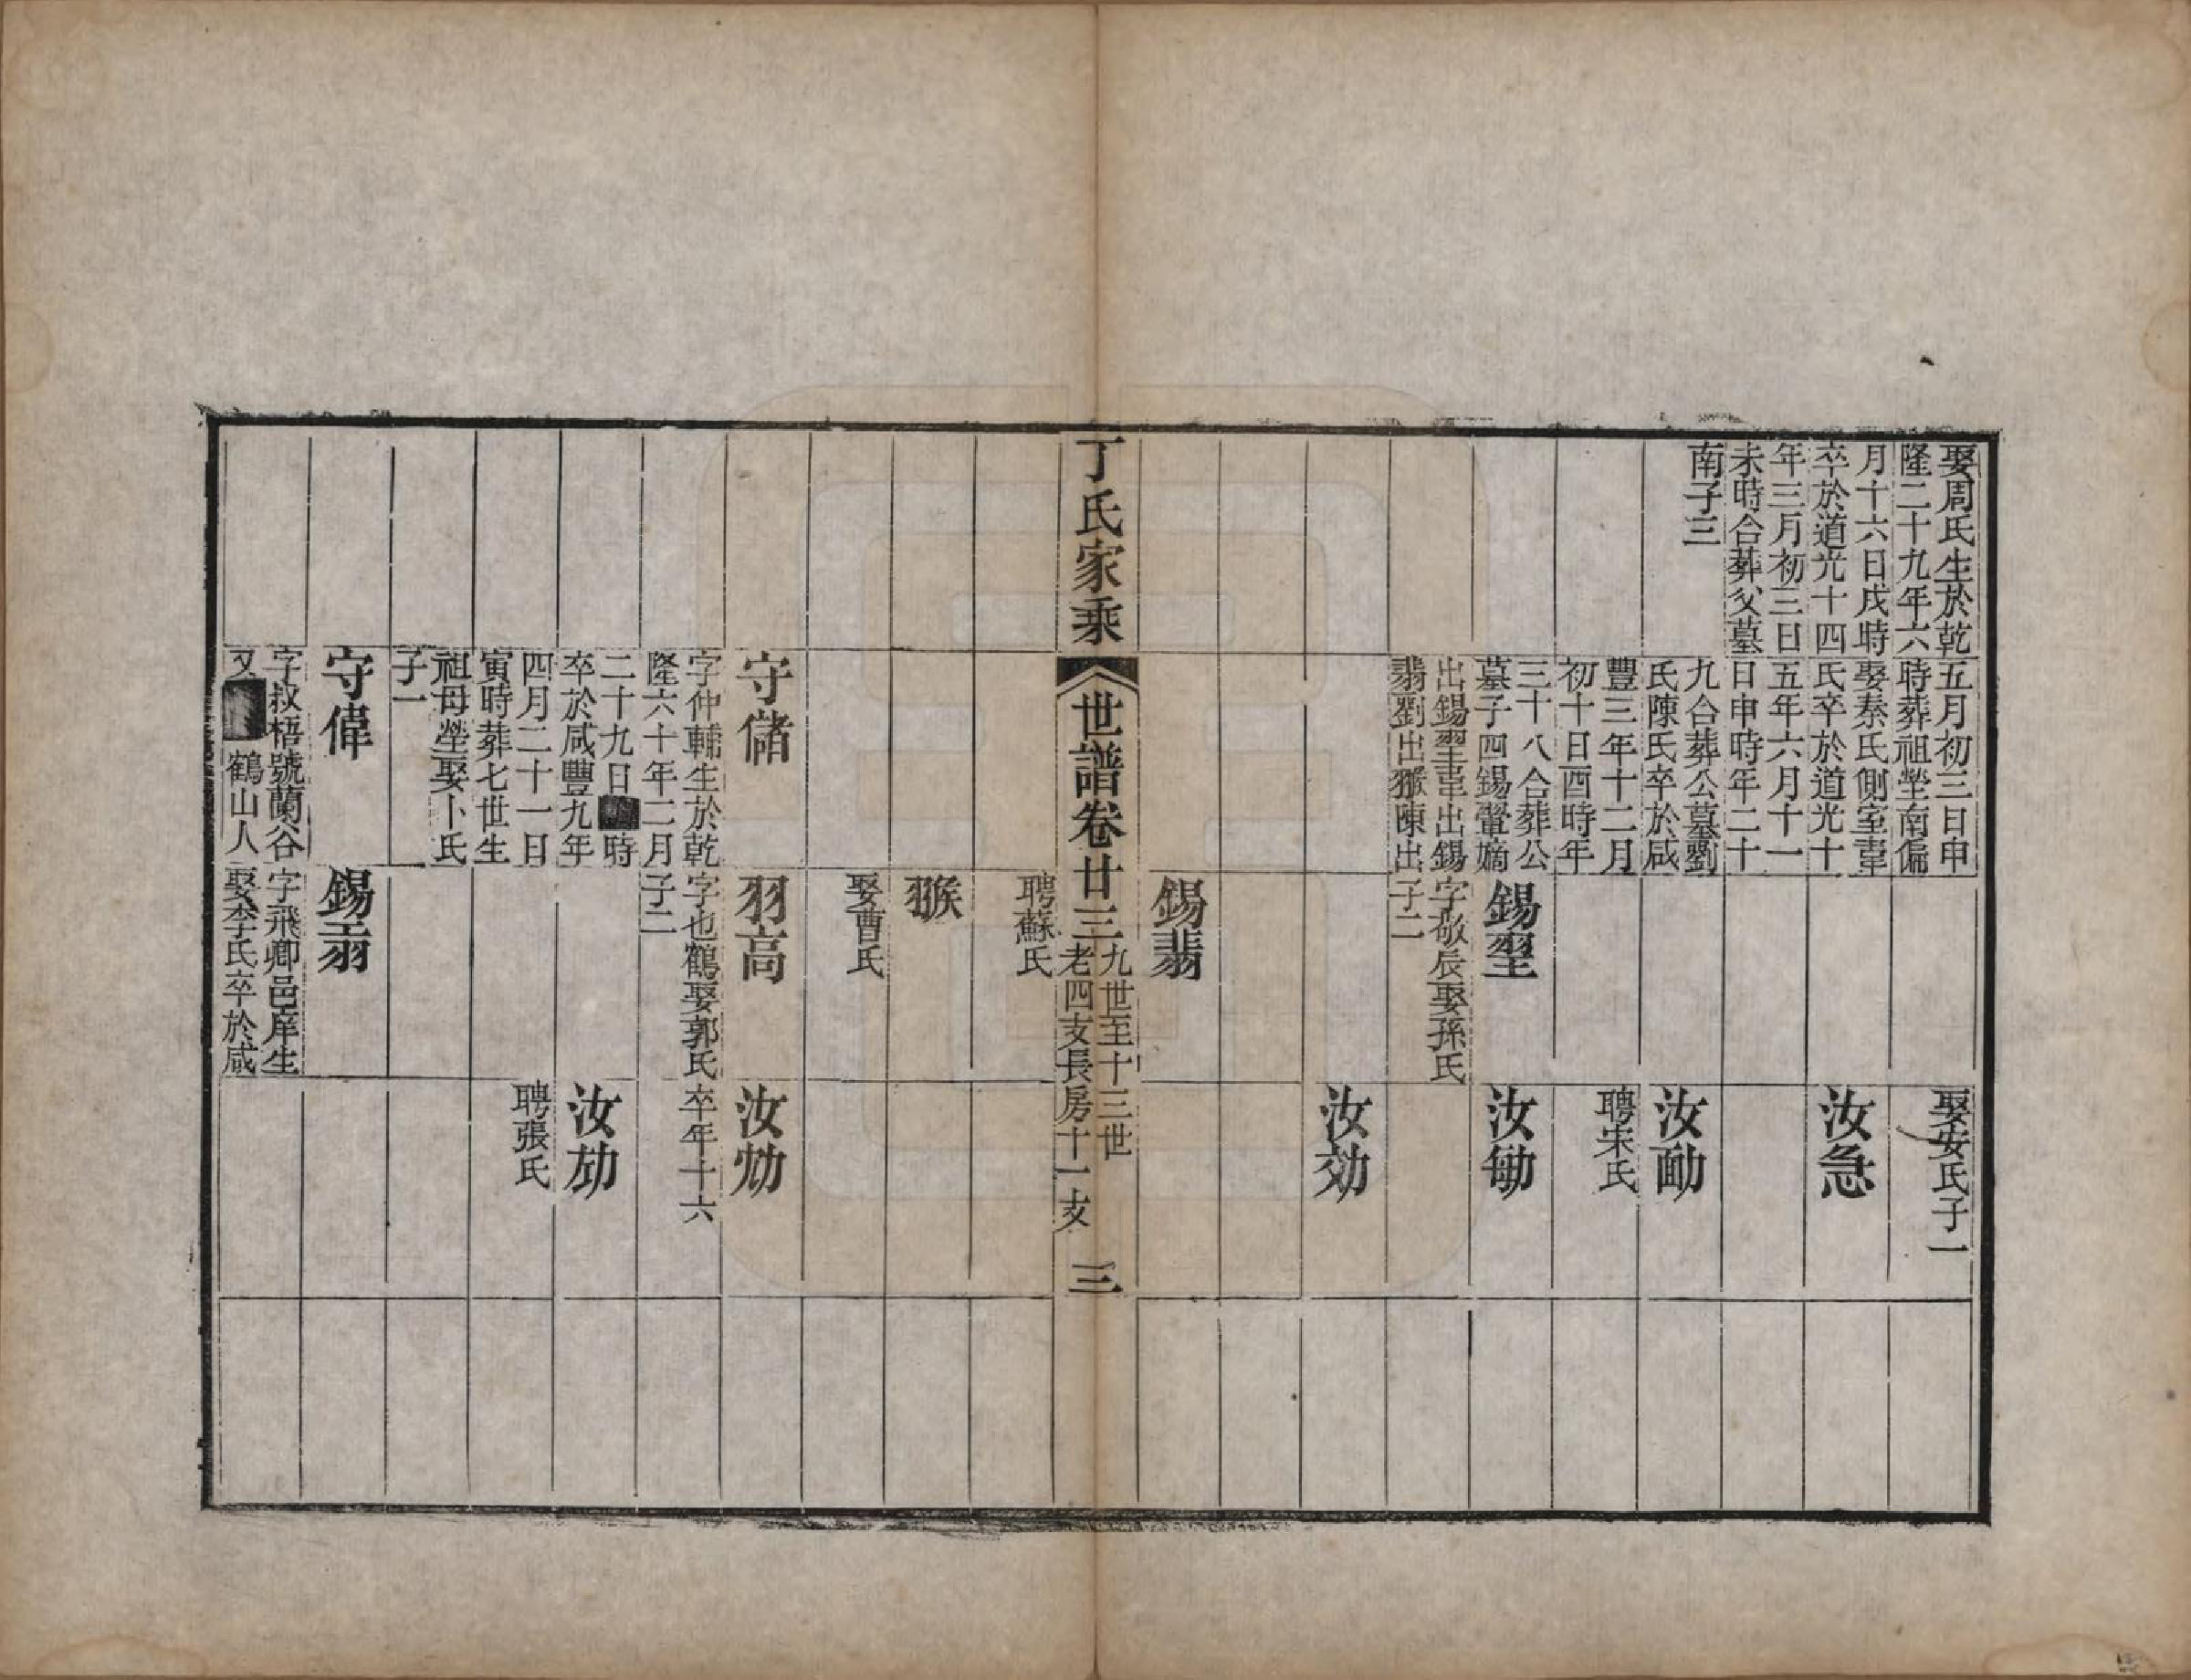 娶周氏生於乾
隆二十九年六
月十六日戌時
卒於道光十四
年三月初三日
未時合葬父墓
南子三
五月初三日申
時葬祖塋南偏
娶秦氏側室韋
氏卒於道光十
五年六月十一
日申時年二十
九合葬公墓劉
氏陳氏卒於咸
豐三年十二月
初十日酉時年
三十八合葬公
墓子四錫 嫡
出錫 韋出錫
翡劉出 陳出
錫
字敬辰娶孫氏
子二
錫翡
娶安氏子一
汝急
汝勔
聘宋氏
汝勄
汝効
丁氏家乘
世譜卷廿三
九世至十三世
老四支長房十一支
三
聘蘇氏
猴
娶曹氏
守儲
字仲輔生於乾
隆六十年二月
二十九日 時
卒於咸豐九年
四月二十一日
寅時葬七世生
祖母塋娶卜氏
子一
守偉
字叔梧號蘭谷
又 鶴山人
羽高
字也鶴娶郭氏
子二
錫
字飛卿邑庠生
娶李氏卒於咸
汝
卒年十六
汝劥
聘張氏